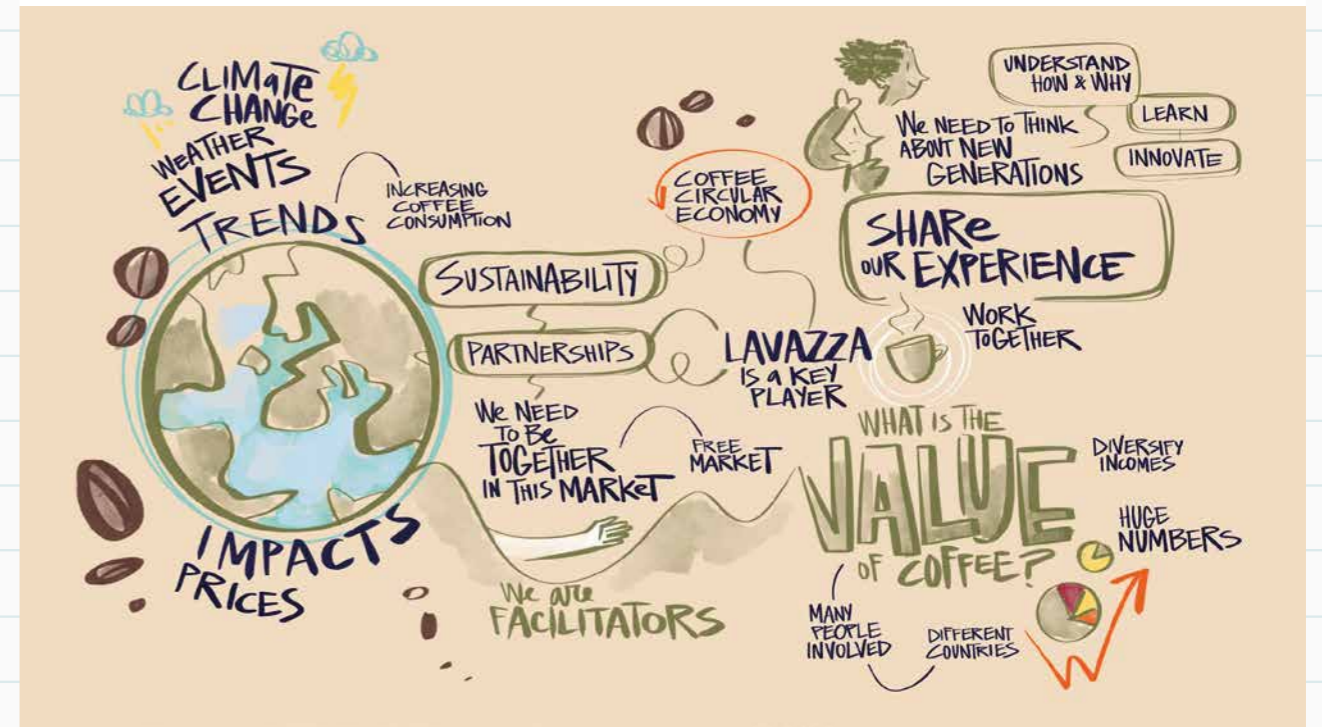 CLIMaTe
CHANGe
WeATHER
EVENTS
TRENDS
INCREASING
COFFEE
CONSUMPTION
IMPACTS
PRICES
SUSTAINABILITY
PARTNERSHIPS
We NEED
To Be
TOGETHER
IN THIS MARKeT
FREE
MARKET
We are
FACILITATORS
COFFEE
CIRCULAR
ECONOMY
LAVAZZA
IS a KEY
PLAYER
UNDERSTAND
HOW & WHY
LEARN
INNOVATE
We NEED To THINK
ABOUT NEW
GENERATIONS
SHARe
OUR EXPERIENCE
WORK
ToGETHER
WHAT IS THE
VALUE
OF COFFEE?
DIVERSIFY
INCOMES
HUGE
NUMBERS
MANY
PEOPLE
INVOLVED
DIFFERENT
COUNTRIES